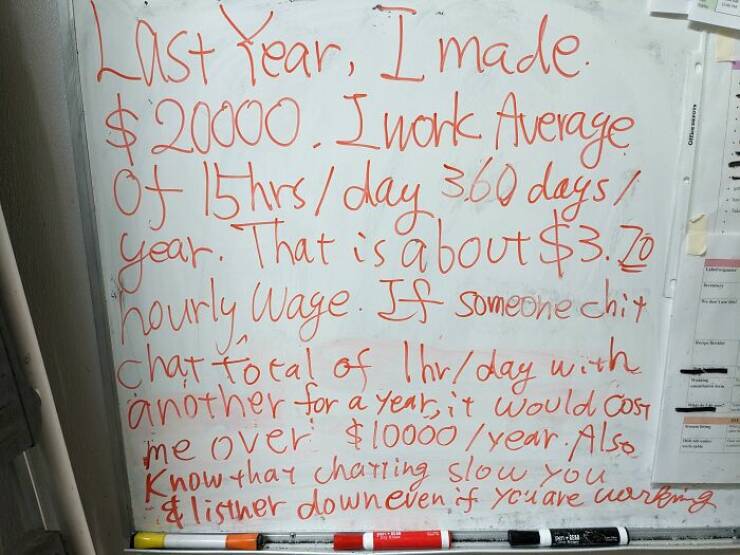 Last Year, I made
$20000. I work Average
Of 15hrs/day 360 days/
year. That is about $3.70
hourly Wage. If someone chit
chat total of 1hr/day with
another for a year, it would cost
me over $10000/year. Also
Know that chatting slow you
& listner down even if you are working